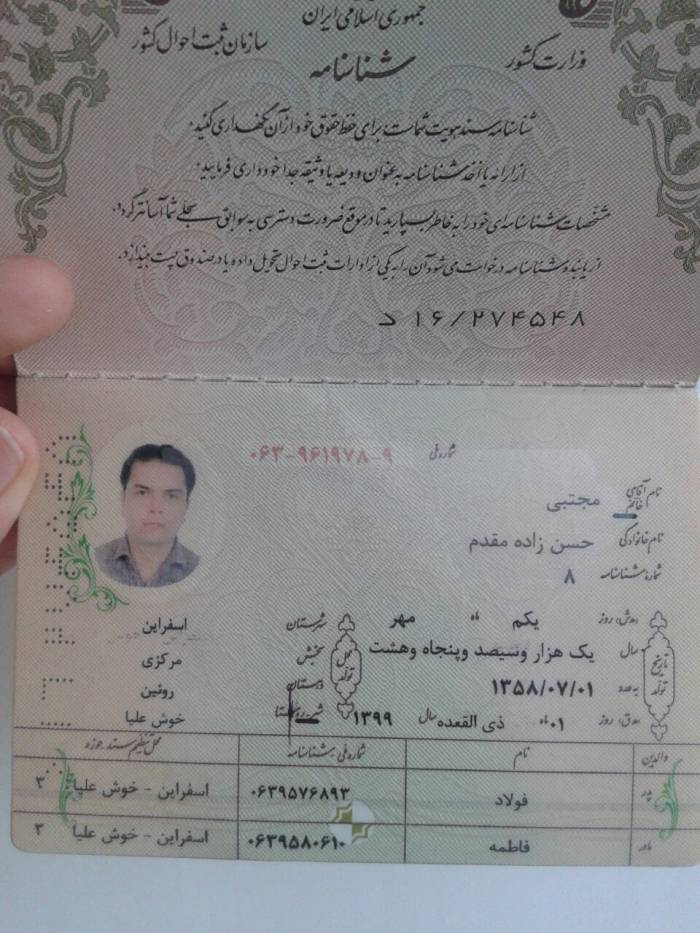 جمهوری اسلامی ایران
وزارت کشور
سازمان ثبت احوال کشور
شناسنامه
شناسنامه سند هویت شماست برای حفظ حقوق خود از آن نگهداری کنید.
از ارائه یا اخذ شناسنامه به عنوان ودیعه یا وثیقه جدا خودداری فرمایید.
مشخصات شناسنامه‌ای خود را به خاطر بسپارید تا در موقع ضرورت دسترسی به سوابق سجلی شما آسانتر گردد.
از یابنده شناسنامه درخواست می‌شود آن را به یکی از ادارات ثبت احوال تحویل داده یا در صندوق پست بیندازد.
د ۱۶/۲۷۴۵۴۸
شماره ملی ۰۶۳-۹۶۱۹۷۸-۹
نام آقای خانم مجتبی
نام خانوادگی حسن زاده مقدم
شماره شناسنامه ۸
تاریخ تولد
روز یکم ماه مهر
سال یک هزار وسیصد وپنجاه وهشت
به عدد ۱۳۵۸/۰۷/۰۱
روز ۰۱ ماه ذی القعده سال ۱۳۹۹
محل تولد
شهرستان اسفراین
بخش مرکزی
دهستان روئین
خوش علیا
والدین نام شماره ملی / شناسنامه محل تنظیم سند حوزه
پدر فولاد ۰۶۳۹۵۷۶۸۹۳ اسفراین - خوش علیا ۳
مادر فاطمه ۰۶۳۹۵۸۰۶۱۰ اسفراین - خوش علیا ۳